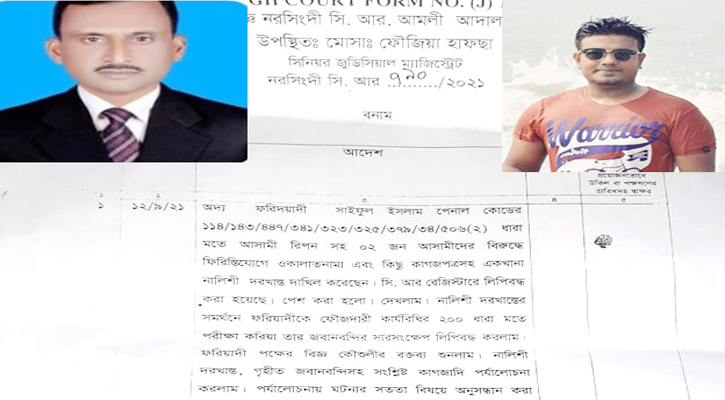 GH COURT FORM NO. (J)
জ্ঞ নরসিংদী সি. আর. আমলী আদাল
উপস্থিতঃ মোসাঃ ফৌজিয়া হাফছা
সিনিয়র জুডিসিয়াল ম্যাজিস্ট্রেট
নরসিংদী সি. আর ৭৯০ ........../২০২১
Warrior
বনাম
আদেশ
প্রয়োজনবোধে
উকিল বা পক্ষগণের
তারিখসহ স্বাক্ষর
১ ২ ৩ ৪ ৫
১ ১২/৯/২১ অদ্য ফরিদয়াদী সাইফুল ইসলাম পেনাল কোডের
১১৪/১৪৩/৪৪৭/৩৪১/৩২৩/৩২৫/৩৭৯/৩৪/৫০৬(২) ধারা
মতে আসামী রিপন সহ ০২ জন আসামীদের বিরুদ্ধে
ফিরিস্তিযোগে ওকালতনামা এবং কিছু কাগজপত্রসহ একখানা
নালিশী দরখাস্ত দাখিল করেছেন। সি. আর রেজিস্টারে লিপিবদ্ধ
করা হয়েছে। পেশ করা হলো। দেখলাম। নালিশী দরখাস্তের
সমর্থনে ফরিয়াদীকে ফৌজদারী কার্যবিধির ২০০ ধারা মতে
পরীক্ষা করিয়া তার জবানবন্দির সারসংক্ষেপ লিপিবদ্ধ করলাম।
ফরিয়াদী পক্ষের বিজ্ঞ কৌশুলীর বক্তব্য শুনলাম। নালিশী
দরখাস্ত, গৃহীত জবানবন্দিসহ সংশ্লিষ্ট কাগজাদি পর্যালোচনা
করলাম। পর্যালোচনায় ঘটনার সততা বিষয়ে অনুসন্ধান করা